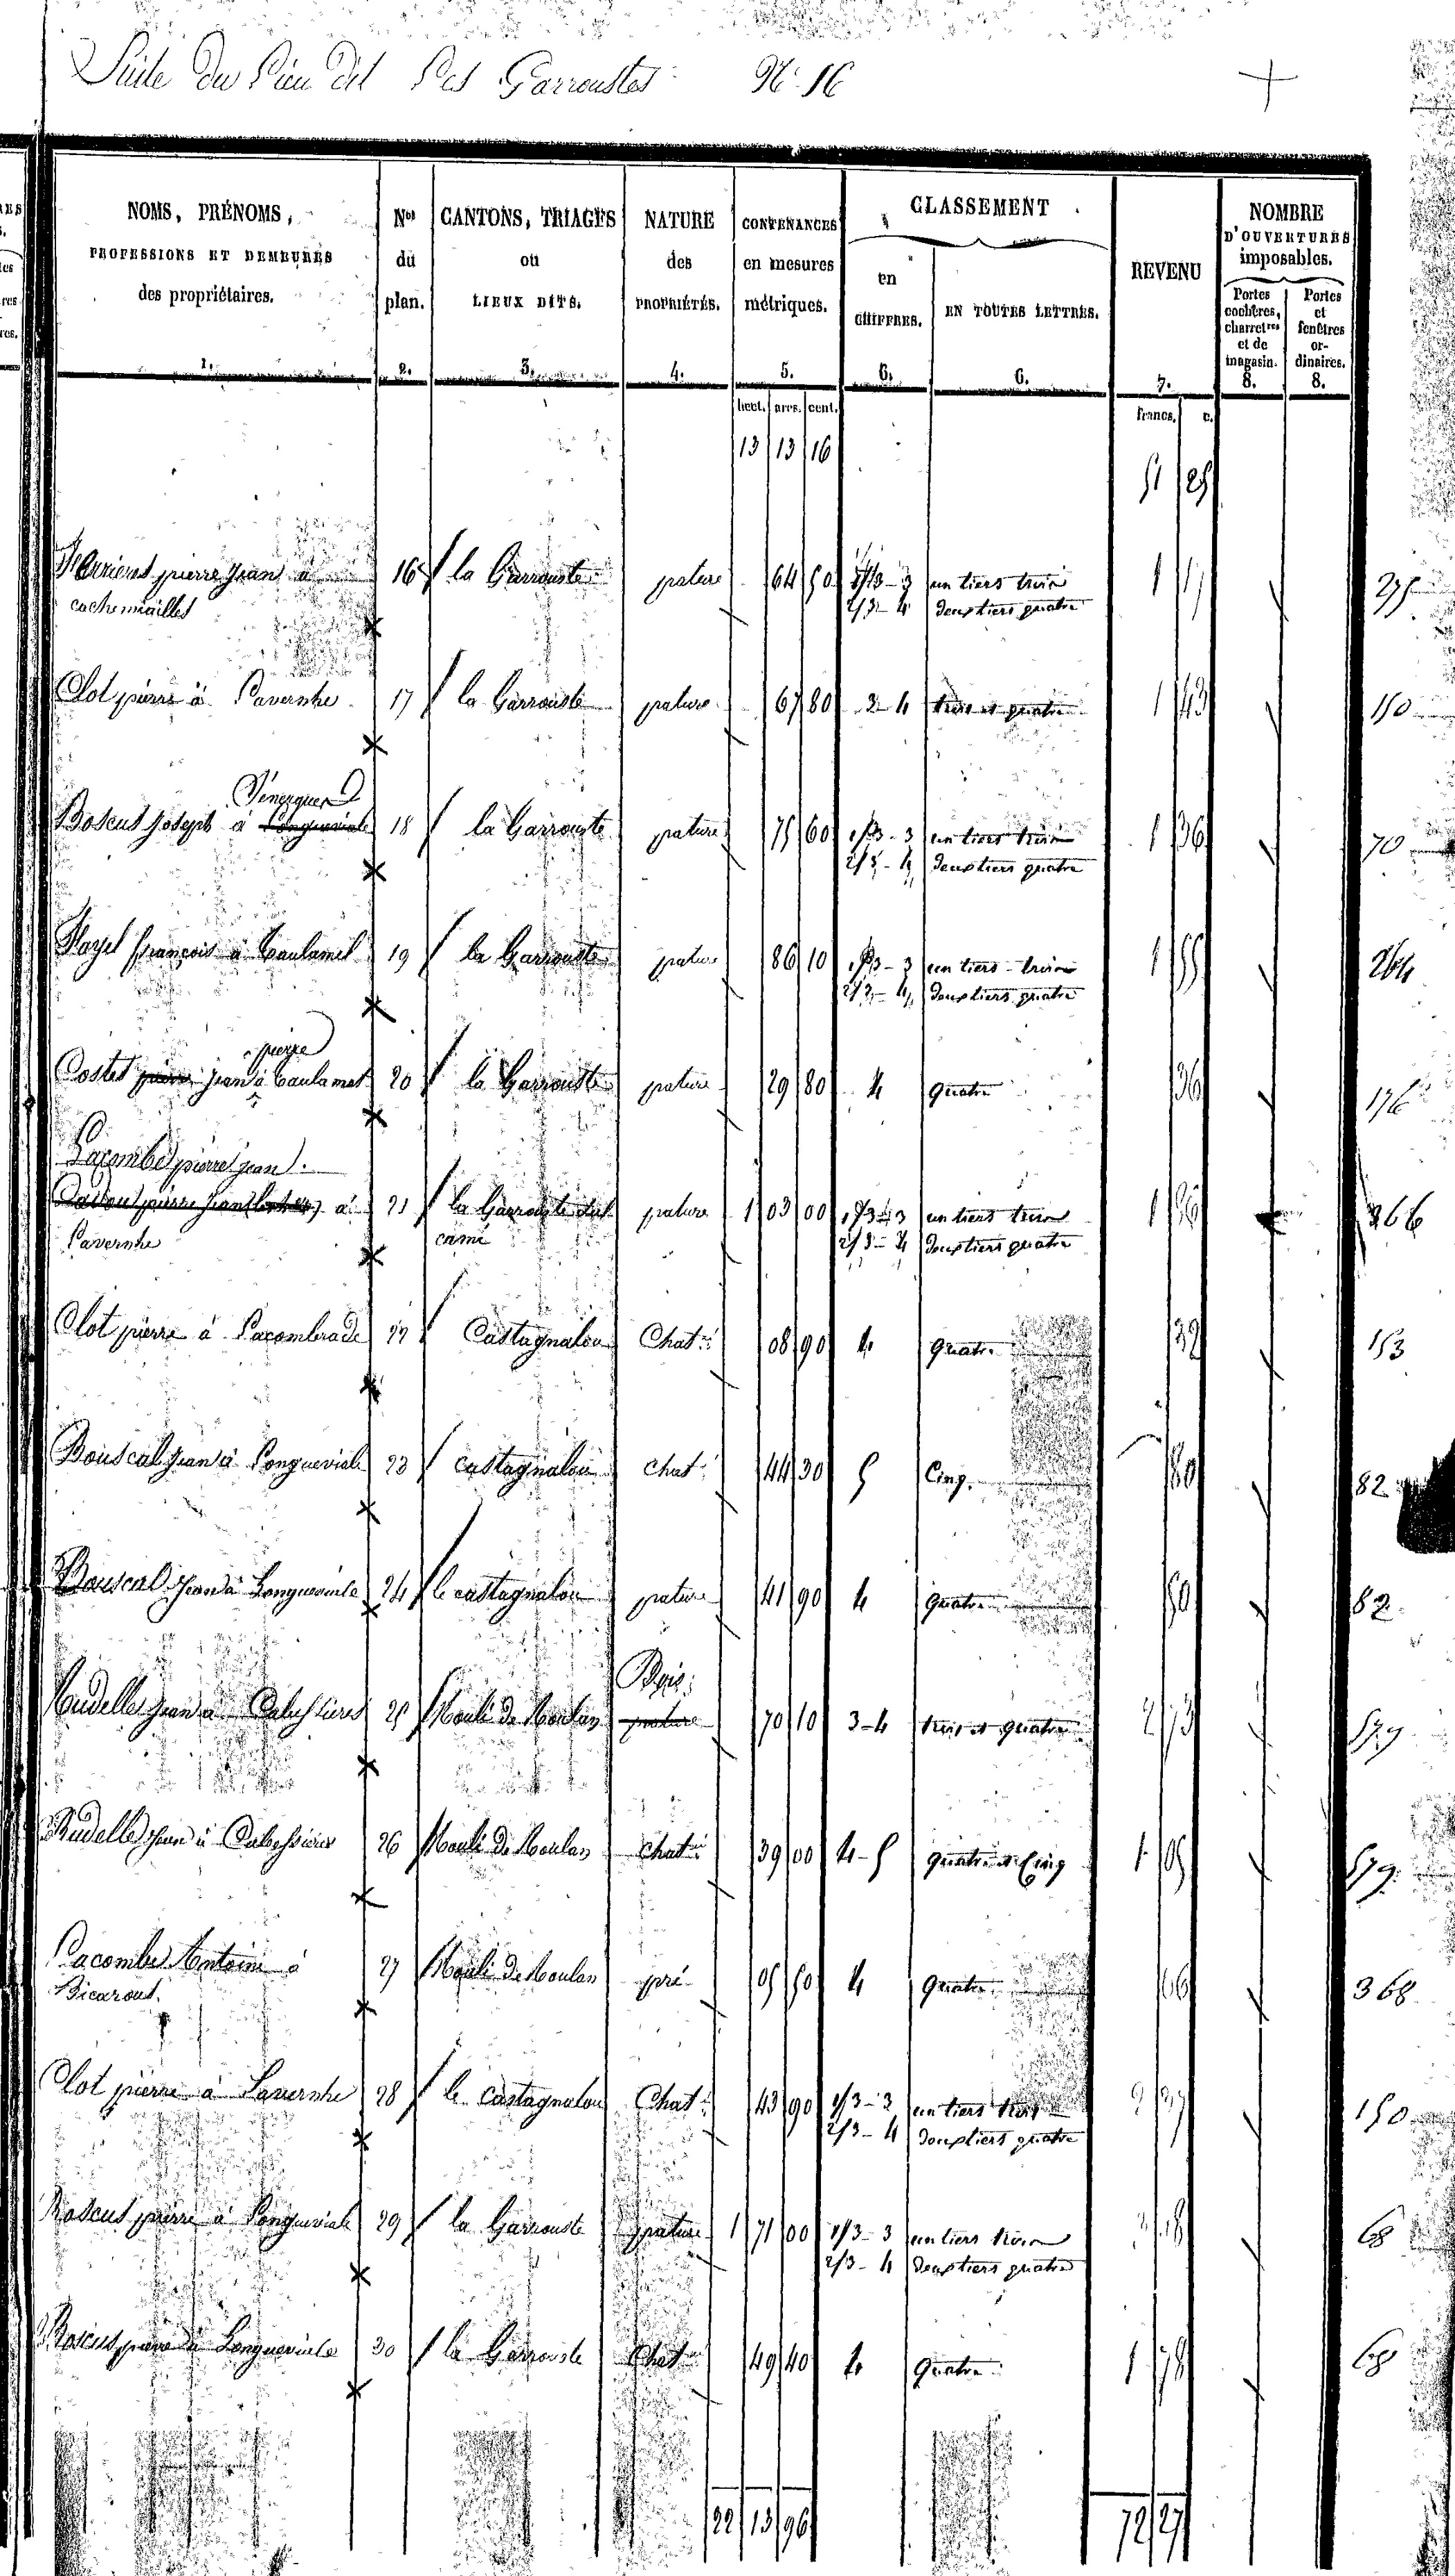 Suite du Lieu dit Les Garroustes N.° 16
NOMS, PRÉNOMS,
PROFESSIONS ET DEMEURES
des propriétaires.
1.
Nos
du
plan.
2.
CANTONS, TRIAGES
ou
LIEUX DITS.
3.
NATURE
des
PROPRIÉTÉS.
4.
CONTENANCES
en mesures
métriques.
5.
CLASSEMENT
en
CHIFFRES.
6.
EN TOUTES LETTRES.
6.
REVENU
7.
NOMBRE
D'OUVERTURES
imposables.
Portes
cochères,
charretres
et de
magasin.
8.
Portes
et
fenêtres
or-
dinaires.
8.
hect. ares. cent.
francs. c.
13 13 16
51 25
pierre jean à 16 la Garrouste pature 64 50 1/3 - 3 un tiers trois 1
cachemailles 2/3 - 4 deux tiers quatre
Clot pierre à Lavernhe 17 la Garrouste pature 67 80 3-4 trois et quatre 1 43 150
Pinerquer
Boscus joseph à Longueviale 18 la Garrouste pature 75 60 1/3 - 3 un tiers trois 1 36 70
2/3 - 4 deux tiers quatre
françois à Caulamet 19 la Garrouste pature 86 10 1/3 - 3 un tiers trois 1 55 264
2/3 - 4 deux tiers quatre
pierre
Costes jean à Caulamet 20 la Garrouste pature 29 80 4 Quatre 36 176
Lacombe pierre jean
pierre jean à 21 la Garrouste pature 1 03 00 1/3 - 3 un tiers trois 1 366
Lavernhe 2/3 - 4 deux tiers quatre
Clot pierre à Lacombrade 22 Castagnalou Chat.ie 08 90 4 Quatre 32 153
Bouscal jean à Longueviale 23 Castagnalou Chat. 44 30 5 Cinq 80 82
Bouscal jean à Longueviale 24 le castagnalou pature 41 90 4 Quatre 50 82
Bois
Rudelle jean à Calessières 25 Mouli de Moulan pature 70 10 3-4 trois et quatre 2 73 579
Rudelle jean à Calessières 26 Mouli de Moulan Chat. 39 00 4-5 Quatre et Cinq 1 05 579
Lacombe Antoine à 27 Mouli de Moulan pré 05 50 4 Quatre 66 368
Bicarout
Clot pierre à Lavernhe 28 le castagnalou Chat. 43 90 1/3 - 3 un tiers trois 2 37 150
2/3 - 4 deux tiers quatre
Boscus pierre à Longueviale 29 la Garrouste pature 1 71 00 1/3 - 3 un tiers trois 68
2/3 - 4 deux tiers quatre
Boscus pierre à Longueviale 30 la Garrouste Chat. 49 40 4 Quatre 1 78 68
22 13 96
72 27